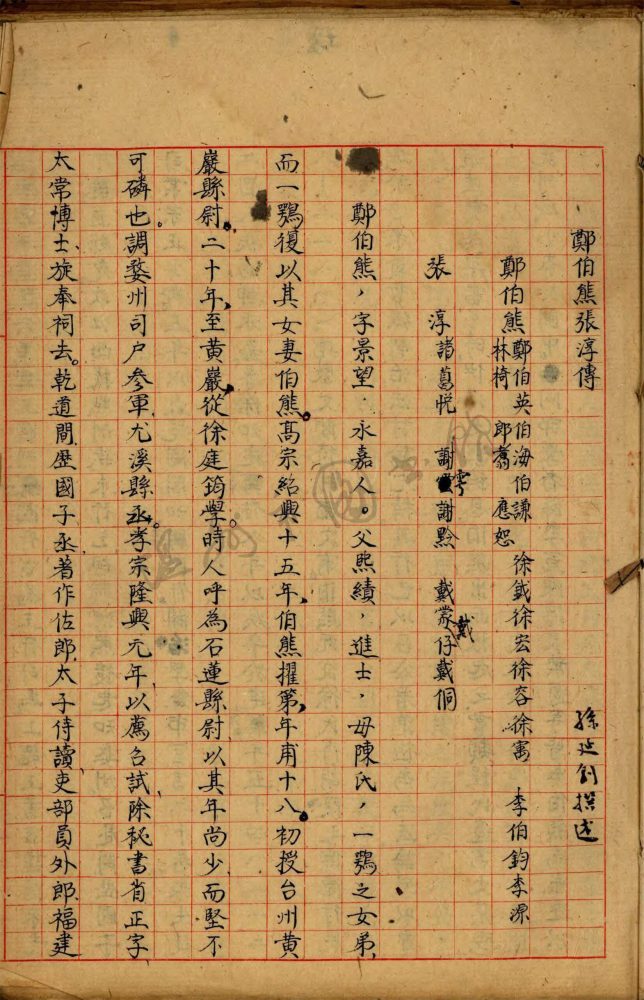 鄭伯熊張淳傳
孫延釗撰述
鄭伯熊 鄭伯英 伯海 伯謙 徐鉞 徐宏 徐容 徐寯 李伯鈞 李源
林椅 郎翥 應恕
張 淳 諸葛悅 謝雩 謝黔 戴蒙 戴仔 戴侗
鄭伯熊，字景望．永嘉人。父熙績，進士，母陳氏，一鶚之女弟，
而一鶚復以其女妻伯熊。高宗紹興十五年，伯熊擢第，年甫十八。初授台州黃
巖縣尉。二十年，至黃巖，從徐庭筠學。時人呼為石蓮縣尉以其年尚少而堅不
可磷也。調婺州司户參軍，尤溪縣丞。孝宗隆興元年，以薦召試，除秘書省正字、
太常博士，旋奉祠去。乾道間，歷國子丞著作佐郎、太子侍讀吏部員外郎、福建